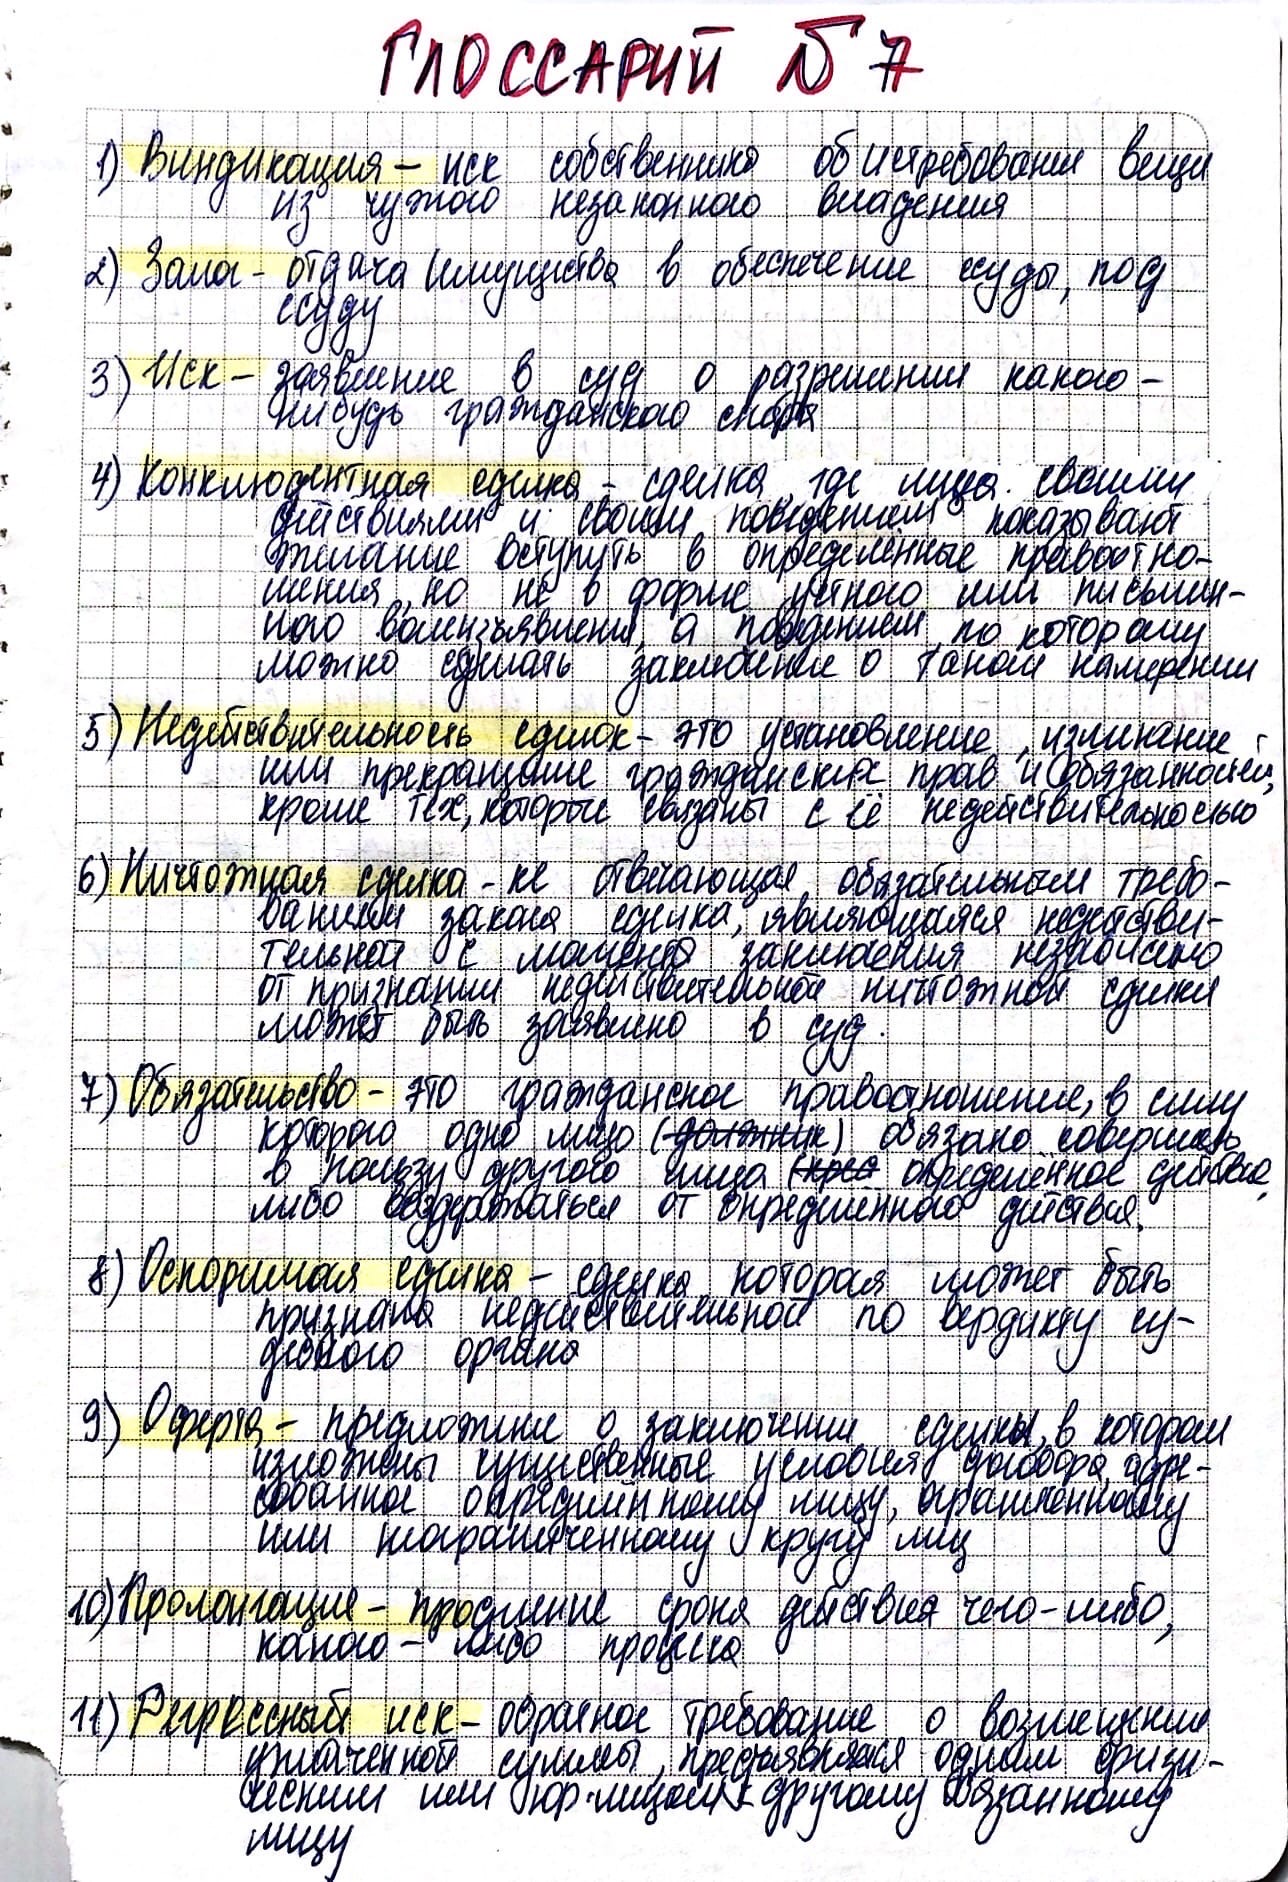 ГЛОССАРИЙ №7
1) Виндикация – иск собственника об истребовании вещи
из чужого незаконного владения
2) Залог – отдача имущества в обеспечение ссуды, под
ссуду
3) Иск – заявление в суд о разрешении какого-
нибудь гражданского спора
4) Конклюдентная сделка – сделка, где лица своими
действиями и своим поведением показывают
желание вступить в определенные правоотно-
шения, но не в форме устного или письмен-
ного волеизъявления, а поведением, по которому
можно сделать заключение о таком намерении
5) Недействительность сделок – это установление, изменение
или прекращение гражданских прав и обязанностей,
кроме тех, которые связаны с её недействительностью
6) Ничтожная сделка – не отвечающая обязательным требо-
ваниям закона сделка, являющаяся недействи-
тельной с момента заключения независимо
от признании недействительной ничтожной сделки
может быть заявлено в суд.
7) Обязательство – это гражданское правоотношение, в силу
которого одно лицо (должник) обязано совершить
в пользу другого лица (кред определённое действие,
либо воздержаться от определенного действия.
8) Оспоримая сделка – сделка которая может быть
признана недействительной по вердикту су-
дебного органа
9) Оферта – предложение о заключении сделки, в котором
изложены существенные условия договора, адре-
сованное определённому лицу, ограниченному
или неограниченному кругу лиц
10) Пролонгация – продление срока действия чего-либо,
какого-либо процесса
11) Регрессный иск – обратное требование о возмещении
уплаченной суммы, предъявляемая одним физи-
ческим или юр. лицом к другому обязанному
лицу